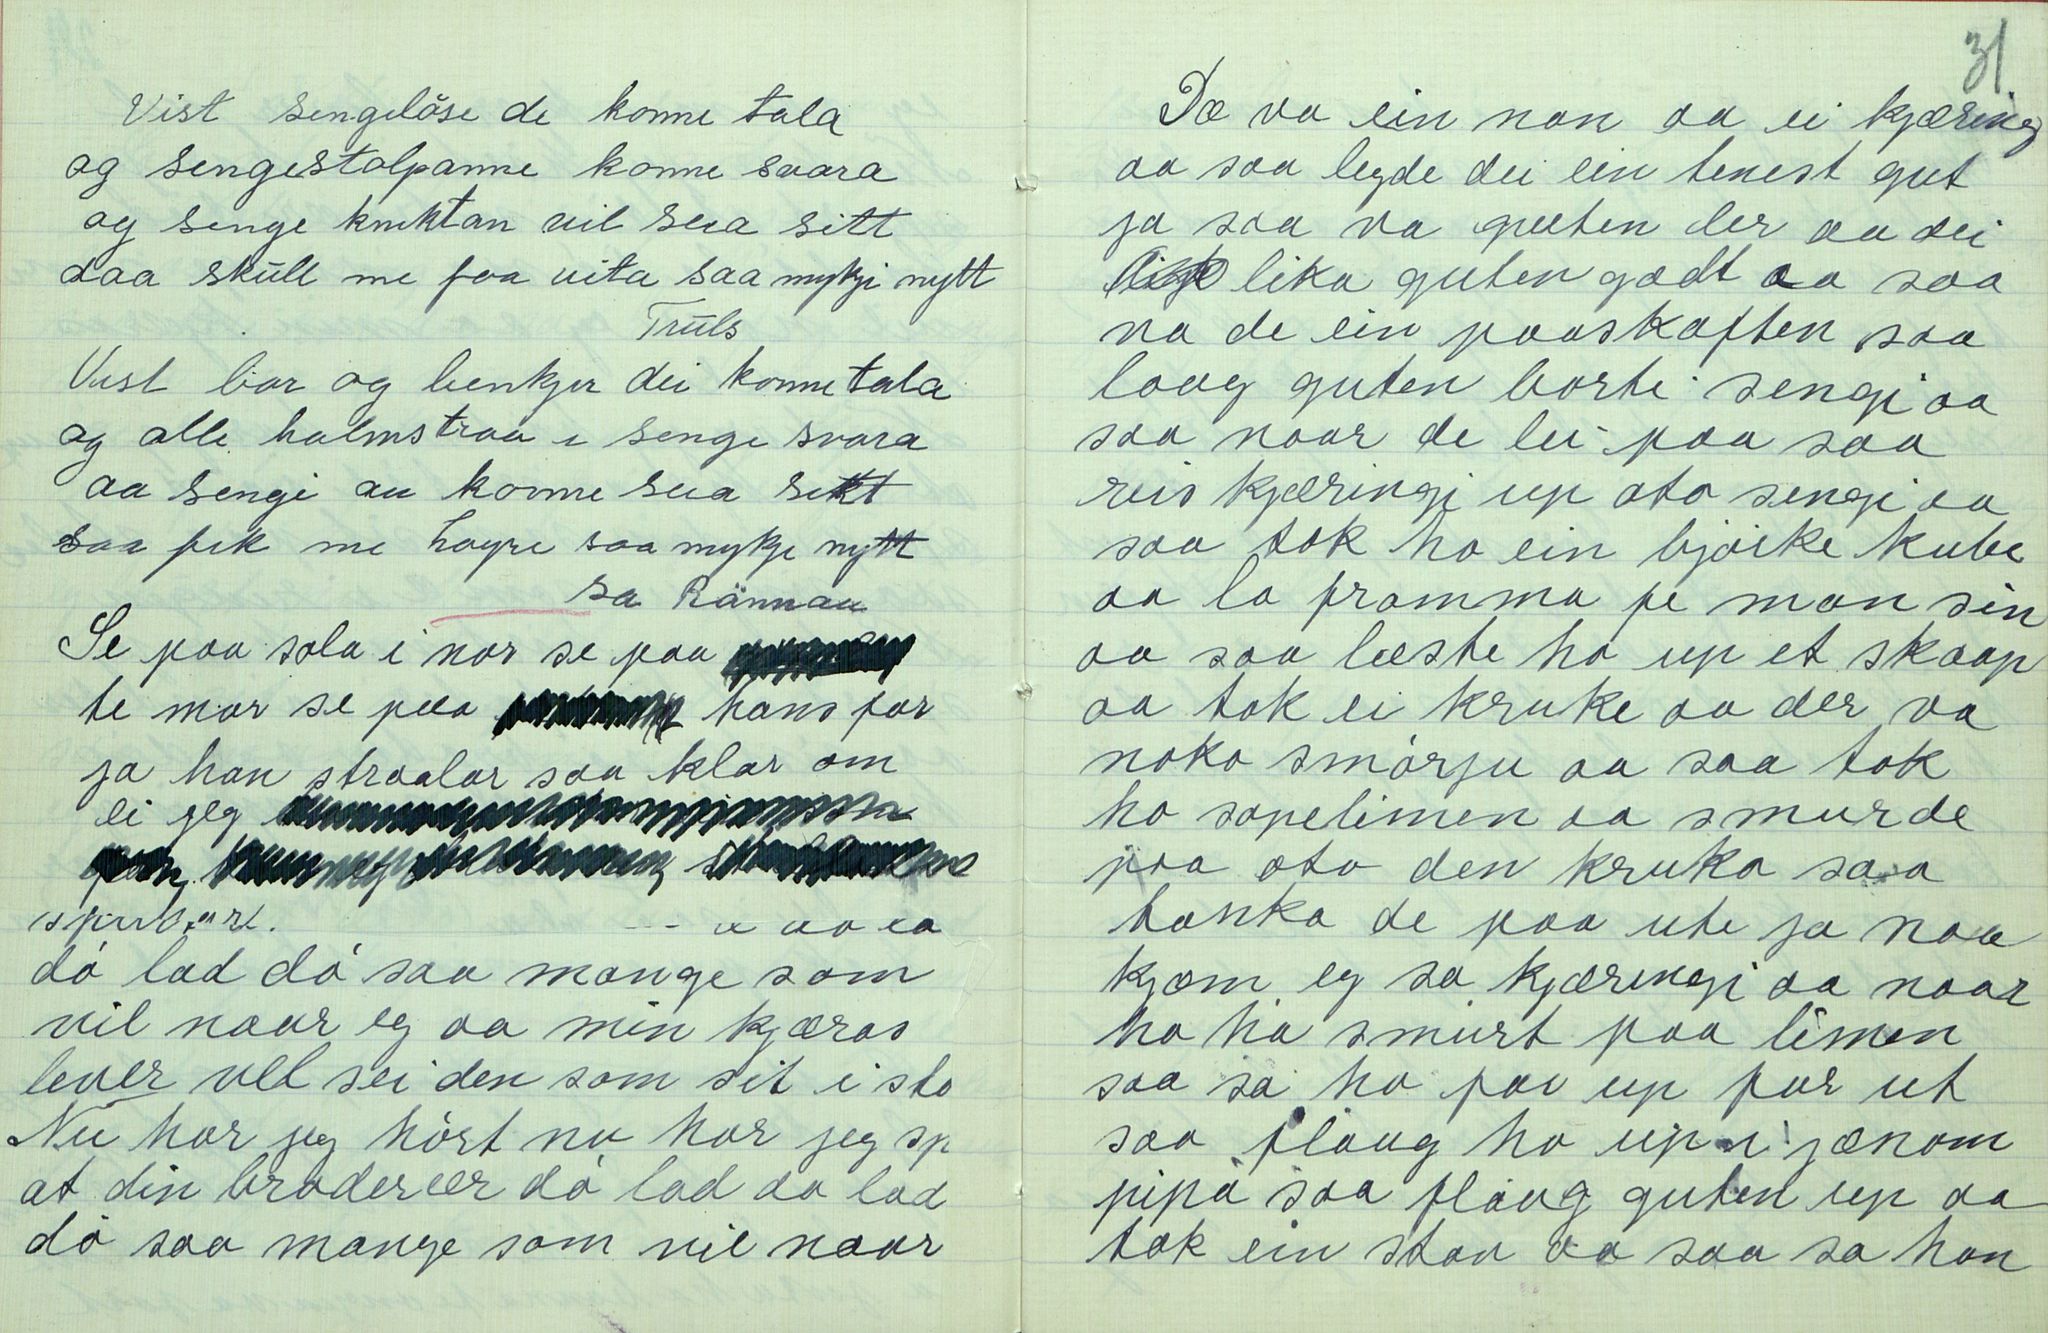 Vist sengelöse de konne tala
og sengestolpanne konne svara
og senge knektan vil seia sitt
daa skull me faa vita saa mykji nytt
Truls
Vist bor og benkjer dei konne tala
og alle halmstraa i senge svara
aa sengi au konne seia sitt
saa fek me høyre saa mykje nytt
sa Rännau
Se paa sola i nor se paa
te mor se paa hans far
ja han straalar saa klar om
ei jeg

dö lad dö saa mange som
vil naar eg aa min kjæras
lever vel sei den som sit i sto
Nu har jeg hört nu har jeg sp
at din broder er dö lad aa lad
dö saa mange som vil naar
31
Dæ va ein man aa ei kjæring
aa saa leyde dei ein tenest gut
ja saa va guten der aa dei
lika guten godt aa saa
va de ein paaskaften saa
laag guten borte sengi aa
saa naar de lei paa saa
reis kjæringi up ato sengi aa
saa tok ho ein bjørke kube
aa la framma fe man sin
aa saa læste ho up et skaap
aa tok ei kruke aa der va
noko smörju aa saa tok
ho sopelimen aa smurde
paa ato den kruka saa
banka de paa ute ja naa
kjæm eg sa kjæringi aa naar
ho ha smurt paa limen
saa sa ho far up far ut
saa flaug ho up i jænom
pipå saa flaug guten up aa
tok ein stav aa saa sa han